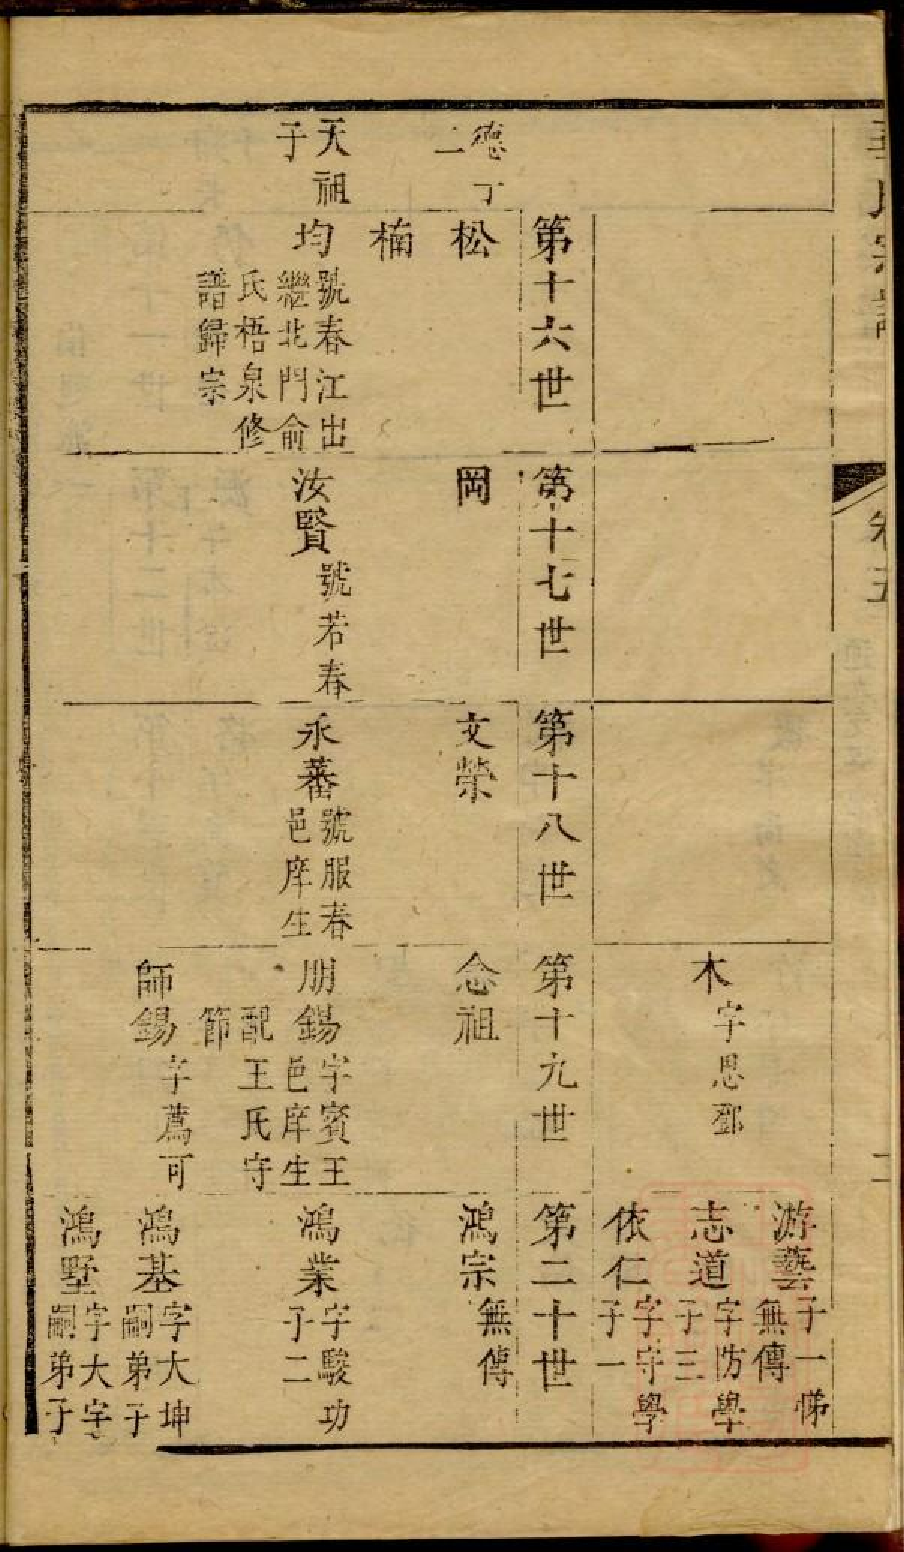 氏宗譜
卷五
木
字思鄧
游藝
子一悌
無傳
志道
字防學
子三
依仁
字守學
子一
第十六世
第十七世
第十八世
第十九世
第二十世
德丁
二
松
岡
文榮
念祖
鴻宗
無傳
楠
天祖
子
均
號春江出
繼北門俞
氏梧泉修
譜歸宗
汝賢
號若春
永蕃
號服春
邑庠生
朋錫
字賓王
邑庠生
配王氏守
節
鴻業
字駿功
子二
師錫
字薦可
鴻基
字大坤
嗣弟子
鴻墅
字大宇
嗣弟子